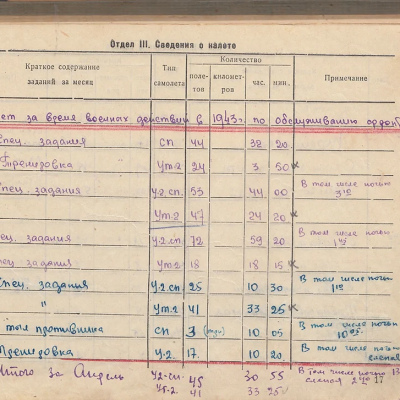 Отдел III. Сведения о налете
Краткое содержание заданий за месяц Тип самолета Количество полетов километров час. мин. Примечание
ет за время военных действий в 1943г. по обслуживанию
Спец. задания СП 44 32 20
Тренировка Ут-2 24 3 50
Спец. задания У-2 сп. 53 44 00 В том числе ночью
Ут-2 47 24 20
Спец. задания У-2 сп. 72 59 20 В том числе ночью
Спец. задания Ут-2 18 18 15
Спец. задания У-2 сп 25 10 30 В том числе ночью 1
" Ут-2 41 33 25
тыл противника СП 3 10 05 В том числе ночью 10 05
Тренировка У-2. 17. 10 20. В том числе
Итого за Апрель У2-сп. 45 30 55 В том числе ночью 13
Ут-2 41 33 25 слепой 17